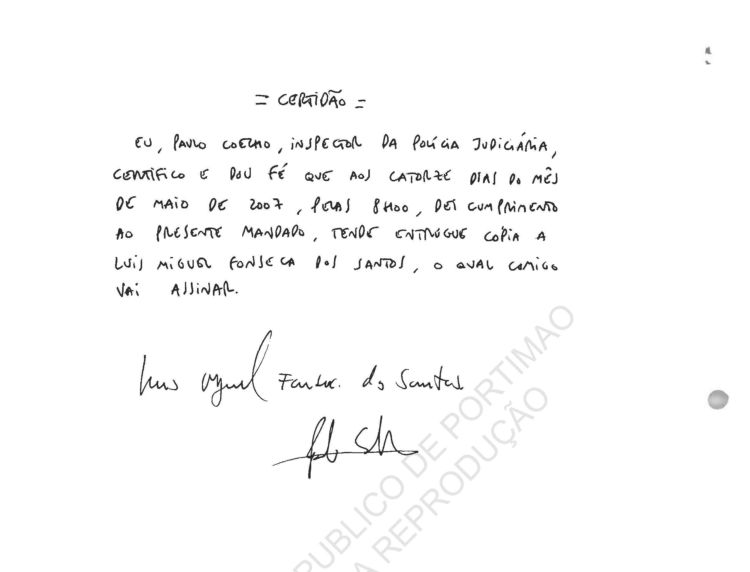 = CERTIDÃO =
EU, PAULO COELHO, INSPECTOR DA POLÍCIA JUDICIÁRIA,
CERTIFICO E DOU FÉ QUE AOS CATORZE DIAS DO MÊS
DE MAIO DE 2007, PELAS 8H00, DEI CUMPRIMENTO
AO PRESENTE MANDADO, TENDO ENTREGUE CÓPIA A
LUÍS MIGUEL FONSECA DOS SANTOS, O QUAL COMIGO
VAI ASSINAR.
Luis Miguel Fonsec. dos Santos
PUBLICO DE PORTIMAO
A REPRODUÇÃO